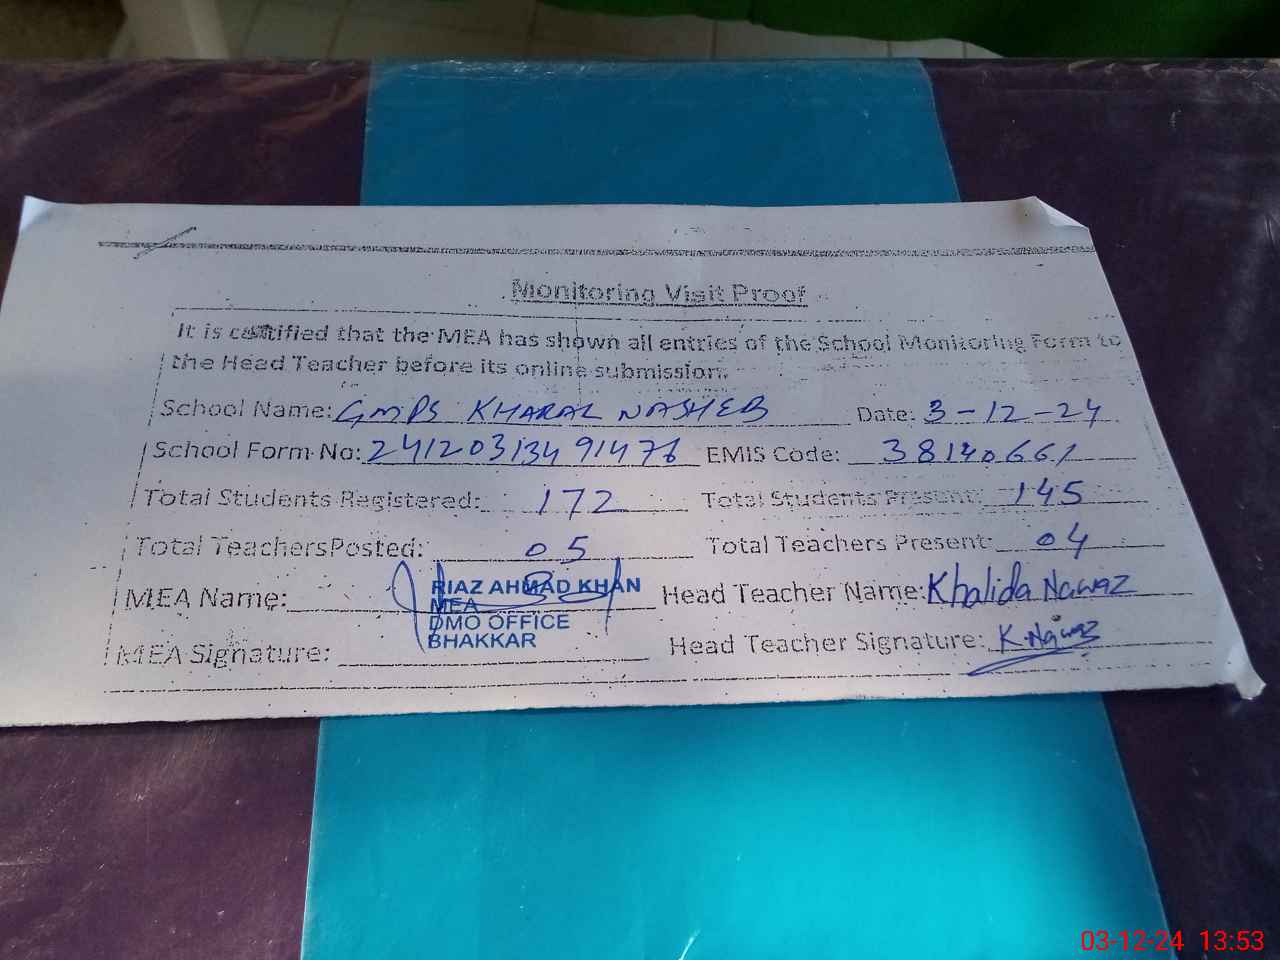 Monitoring Visit Proof
It is certified that the MEA has shown all entries of the School Monitoring Form to
the Head Teacher before its online submission.
School Name: GMPS KHARAL NASHEB Date: 3-12-24
School Form No: 24120313491476 EMIS Code: 38140661
Total Students Registered: 172 Total Students Present: 145
Total Teachers Posted: 05 Total Teachers Present: 04
MEA Name: RIAZ AHMAD KHAN Head Teacher Name: Khalida Nawaz
MEA
DMO OFFICE
BHAKKAR
MEA Signature: Head Teacher Signature: K.Nawaz
03-12-24 13:53